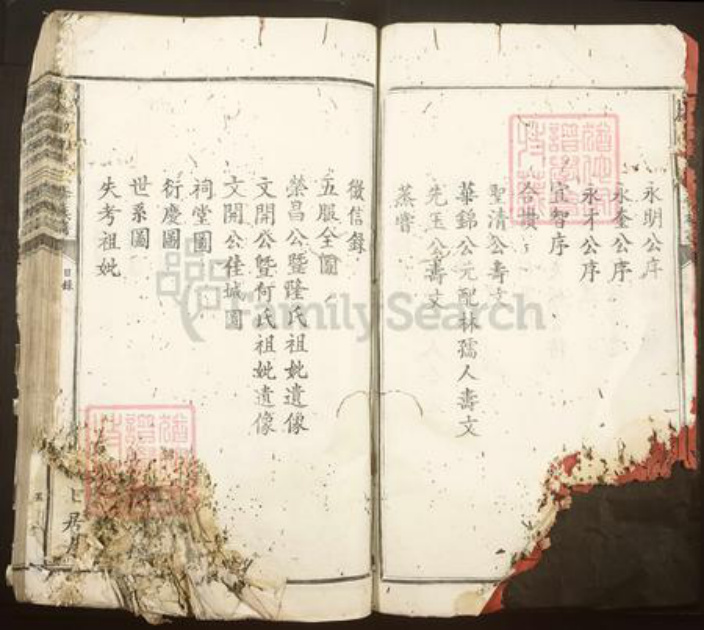 永明公序
永奎公序
永才公序
宜智序
合攢
聖清公壽文
華錦公元配林孺人壽文
先玉公壽文
蒸嘗
徵信錄
五服全圖
榮昌公暨隆氏祖妣遺像
文開公暨何氏祖妣遺像
文開公佳城圖
祠堂圖
衍慶圖
世系圖
失考祖妣
目錄
FamilySearch